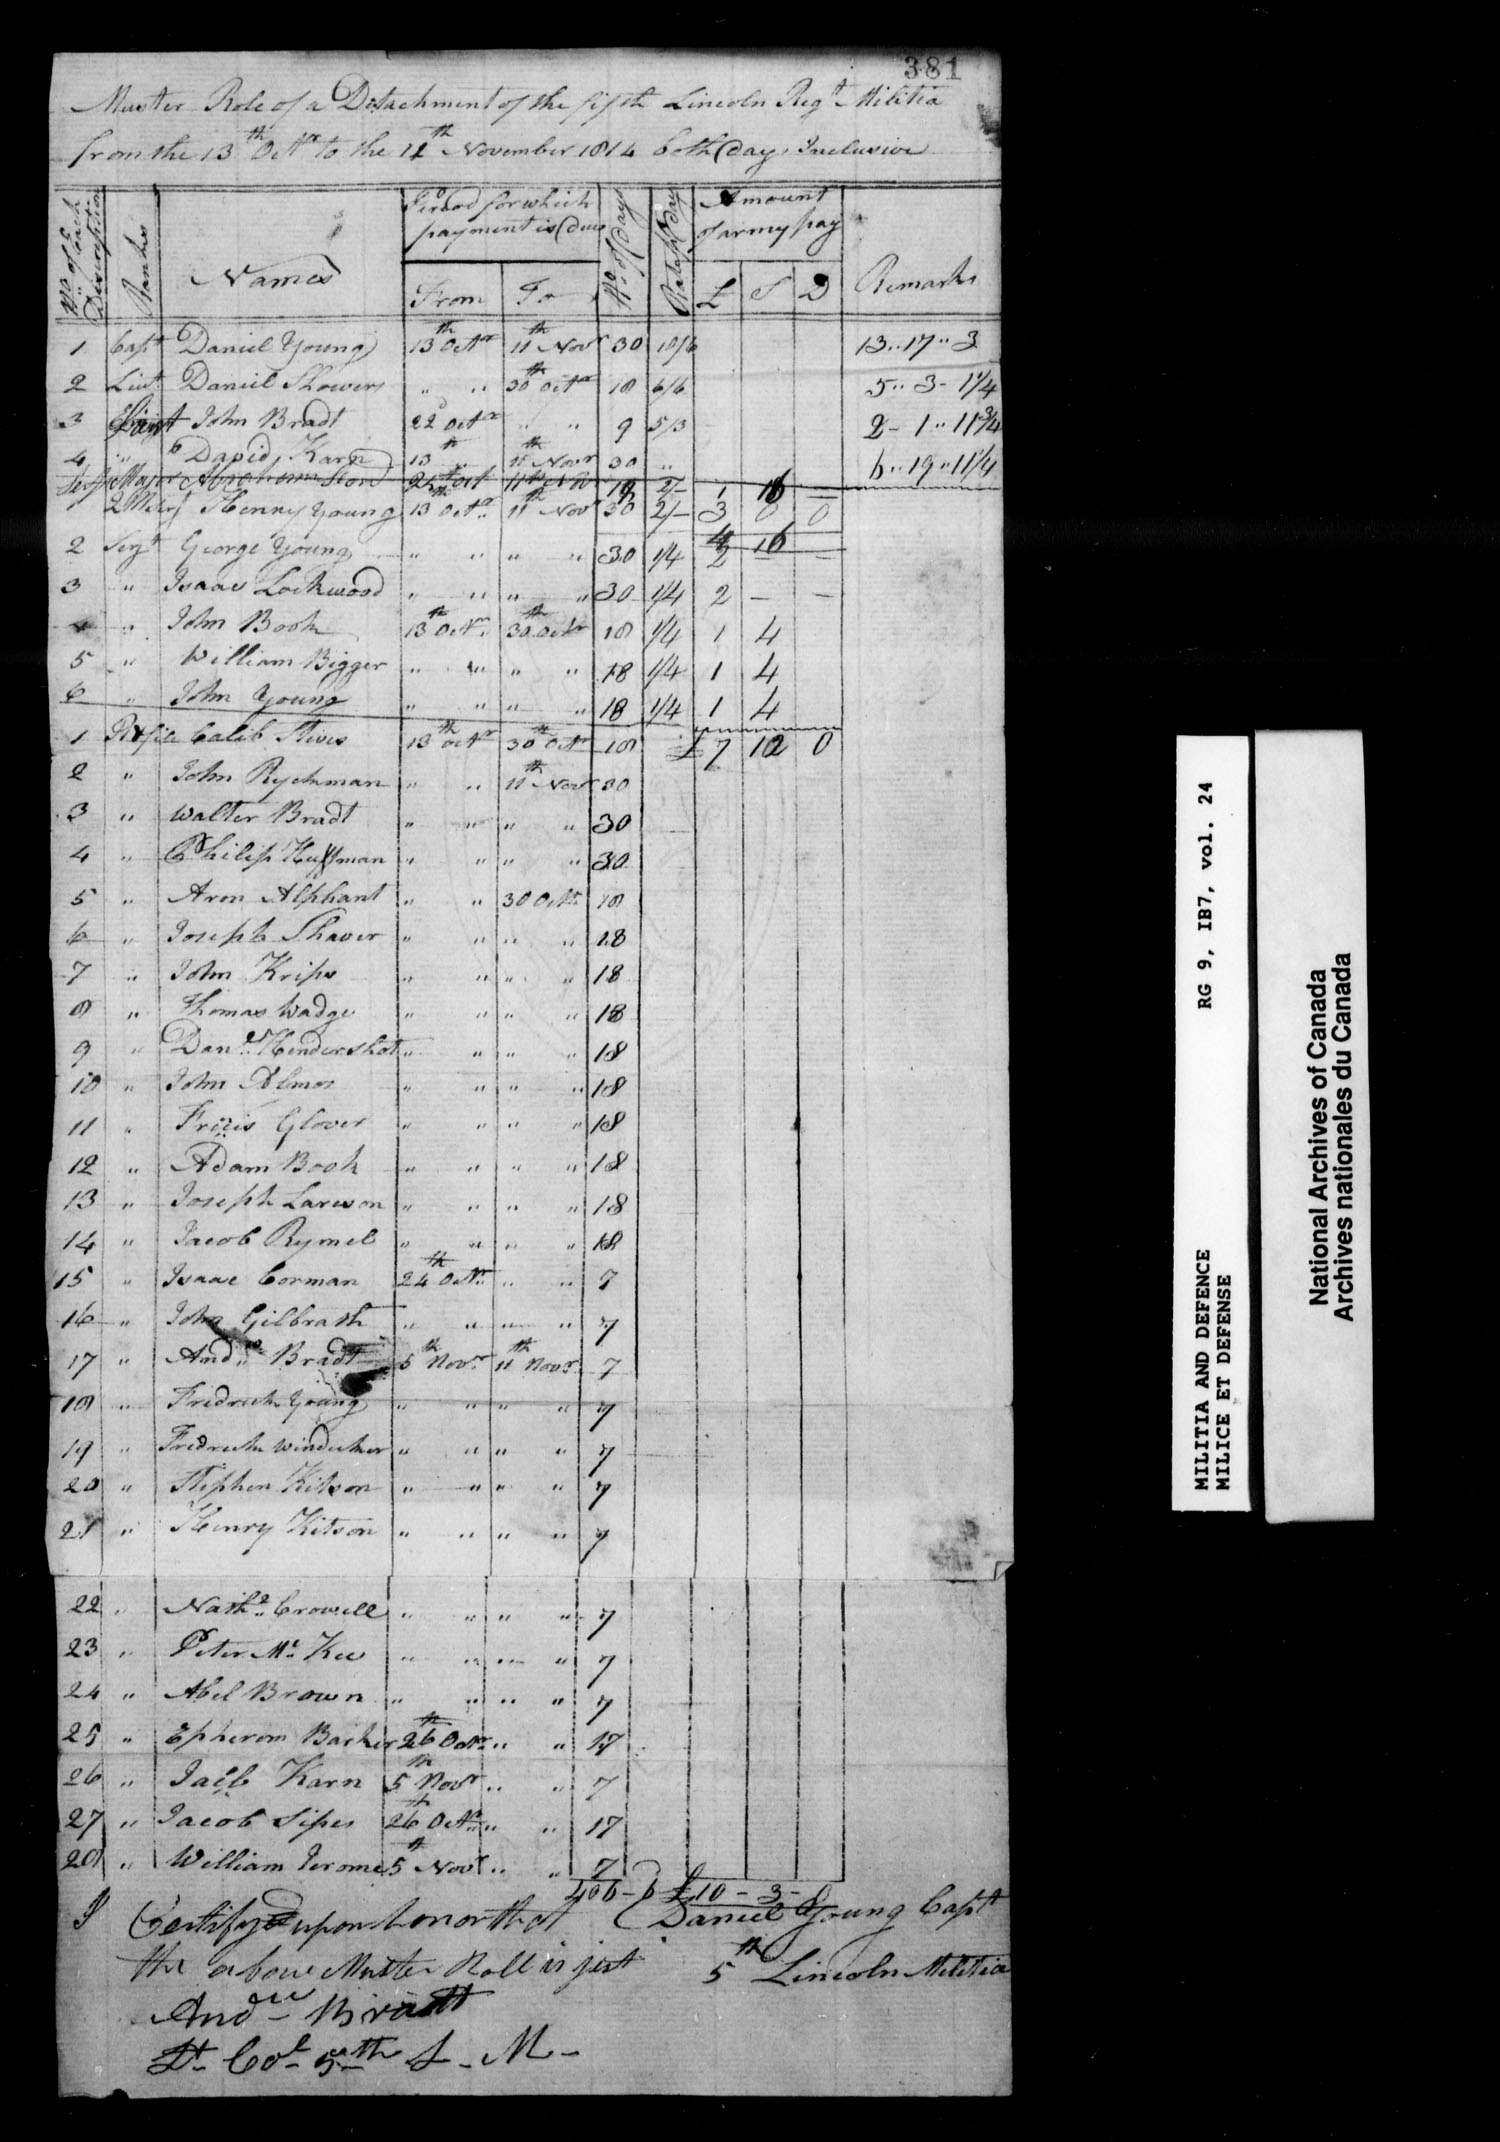 381
Muster Role of a Detachment of the fifth Lincoln Regt Militia
from the 13th Octr to the 11th November 1814 both days Inclusive
No of Each Discription | Ranks | Names | Period for which payment is due | No of Days | Rate pr day | Amount of army pay | Remarks
From | To | £ | S | D
1 Capt Daniel Young 13th Octr 11th Novr 30 10/6 13..17..3
2 Lieut Daniel Showers " " 30th Octr 18 6/6 5..3-1¼
3 John Bradt 22d Octr " " 9 5/3 2-1..11¾
4 " David Karn 13th " 11th Novr 30 " 6..19..11¼
Serjt Major Abraham 25th Oct 11th Nov 18 2/- 1 16 —
1 Henry Young 13th Octr 11th Novr 30 2/- 3 0 0
4 16
2 Serjt George Young " " " " 30 1/4 2 — —
3 " Isaac Lockwood " " " " 30 1/4 2 — —
4 " John Book 13th Octr 30th Octr 18 1/4 1 4
5 " William Bigger " " " " 18 1/4 1 4
6 " John Young " " " " 18 1/4 1 4
1 Caleb Stives 13th Octr 30th Octr 18 £7 12 0
2 " John Ryckman " " 11th Novr 30
3 " Walter Bradt " " " " 30
4 " Philip Huffman " " " " 30
5 " Aron Alphant " " 30 Octr 18
6 " Joseph Shaver " " " " 18
7 " John Krips " " " " 18
8 " Thomas Wadge " " " " 18
9 " Danl Hendershot " " " " 18
10 " John Almos " " " " 18
11 " Fräis Glover " " " " 18
12 " Adam Book " " " " 18
13 " Joseph Lareson " " " " 18
14 " Jacob Rymel " " " " 18
15 " Isaac Corman 24th Octr " " 7
16 " John Gilbrath " " " " 7
17 " Andw Bradt 5th Novr 11th Novr 7
18 " Fredrick Young " " " " 7
19 " Fredrick Windecker " " " " 7
20 " Stephen Kitson " " " " 7
21 " Henry Kitson " " " " 7
22 " Nathl Crowell " " " " 7
23 " Peter Mc Kee " " " " 7
24 " Abel Brown " " " " 7
25 " Epherom Barker 26th Octr " " 17
26 " Jacb Karn 5th Novr " " 7
27 " Jacob Sipes 26th Octr " " 17
28 " William Jerome 5th Novr " " 7
406 - 6 £10 - 3 -
I Certify upon honor that Daniel Young Capt
the above Muster Roll is just 5th Lincoln Militia
Andw Bradt
Lt Col 5th L - M -
MILITIA AND DEFENCE RG 9, IB7, vol. 24
MILICE ET DEFENSE
National Archives of Canada
Archives nationales du Canada